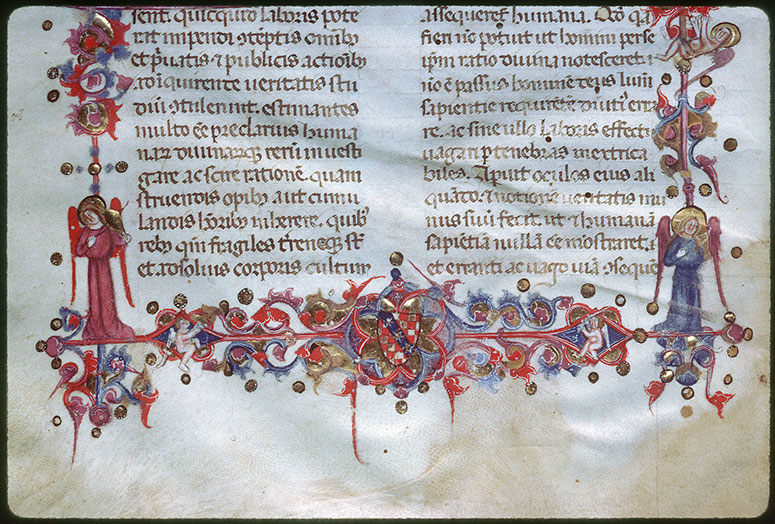 sent. quicquid laboris pote
rat impendi ꝯteptis omībꝰ
et p̄uatis ⁊ publicis actioībꝰ
ad īquirente ueritatis stu
diū ꝯtulerunt. estimantes
multo ēē preclarius huma
nar diuinarqꝫ rerū inuesti
gare ac scire rationē. quam
struendis opibꝰ aut cumu
landis hōribꝰ inherere. quibꝰ
rebꝰ qm̄ fragiles t̄reneqꝫ st̄
et ad solius corporis cultum
assequeret̄ humana. Qd̄ qa
fieri nō potuit ut homini perse
ip̄m ratio diuina notesceret.
nō ē passus hominē deus lumē
sapientie requirētē diuti erra
re. ac sine ullo laboris effectu
uagari p tenebras inextrica
biles. Aperuit oculos eius ali
quādo. ⁊ notionē ueritatis mu
nus suū fecit. ut ⁊ humanā
sapiētiā nullā ēē mōstraret.
et erranti ac uago uiā ꝯsequē